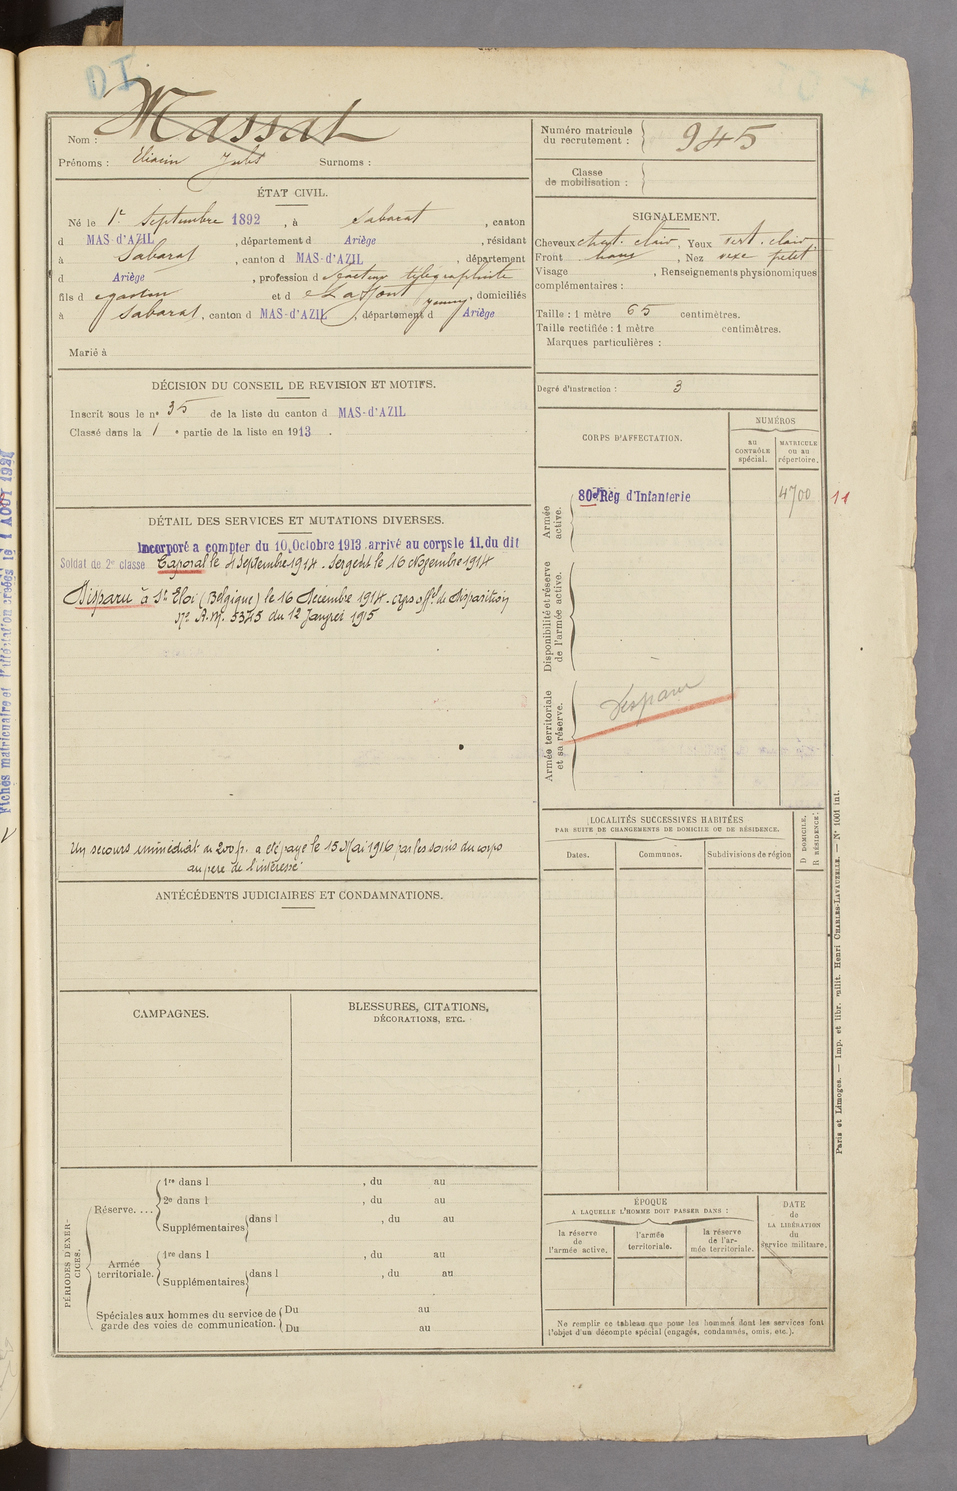 DI
Nom : Massat
Prénoms : Eliacin Jules Surnoms :
ÉTAT CIVIL.
Né le 1er Septembre 1892, à Sabarat, canton
d MAS-d'AZIL, département d Ariège, résidant
à Sabarat, canton d MAS-d'AZIL, département
d Ariège, profession d facteur télégraphiste
fils d Gaston et d Laffont Jenny, domiciliés
à Sabarat, canton d MAS-d'AZIL, département d Ariège
Marié à
DÉCISION DU CONSEIL DE REVISION ET MOTIFS.
Inscrit sous le n° 35 de la liste du canton d MAS-d'AZIL
Classé dans la 1 e partie de la liste en 1913.
DÉTAIL DES SERVICES ET MUTATIONS DIVERSES.
Incorporé à compter du 10 Octobre 1913, arrivé au corps le 11 du dit
Soldat de 2e classe Caporal le 4 Septembre 1914. Sergent le 16 Novembre 1914
Disparu à St Eloi (Belgique) le 16 Décembre 1914. Avis off. de disparition
n° R.M. 5375 du 12 Janvier 1915
Un secours immédiat de 200 fr. a été payé le 15 Mai 1916 par les soins du corps
au père de l'intéressé
ANTÉCÉDENTS JUDICIAIRES ET CONDAMNATIONS.
CAMPAGNES.
BLESSURES, CITATIONS,
DÉCORATIONS, ETC.
PÉRIODES D'EXER-
CICES.
Réserve....
1re dans l , du au
2e dans l , du au
Supplémentaires dans l , du au
Armée
territoriale.
1re dans l , du au
Supplémentaires dans l , du au
Spéciales aux hommes du service de
garde des voies de communication.
Du au
Du au
Numéro matricule
du recrutement : 945
Classe
de mobilisation :
SIGNALEMENT.
Cheveux chat. clair, Yeux vert. clair
Front , Nez vexe petit
Visage , Renseignements physionomiques
complémentaires :
Taille : 1 mètre 65 centimètres.
Taille rectifiée : 1 mètre centimètres.
Marques particulières :
Degré d'instruction : 3
CORPS D'AFFECTATION.
NUMÉROS
AU
CONTRÔLE
spécial.
MATRICULE
ou au
répertoire.
Armée
active.
80e Rég d'Infanterie 4700 11
Disponibilité et réserve
de l'armée active.
Armée territoriale
et sa réserve.
Disparu
LOCALITÉS SUCCESSIVES HABITÉES
PAR SUITE DE CHANGEMENTS DE DOMICILE OU DE RÉSIDENCE.
Dates.
Communes.
Subdivisions de région
D DOMICILE,
R RÉSIDENCE.
ÉPOQUE
A LAQUELLE L'HOMME DOIT PASSER DANS :
la réserve
de
l'armée active.
l'armée
territoriale.
la réserve
de l'ar-
mée territoriale.
DATE
de
LA LIBÉRATION
du
service militaire.
Ne remplir ce tableau que pour les hommes dont les services font
l'objet d'un décompte spécial (engagés, condamnés, omis, etc.).
Paris et Limoges. — Imp. et libr. milit. Henri CHARLES-LAVAUZELLE. — N° 1001 int.